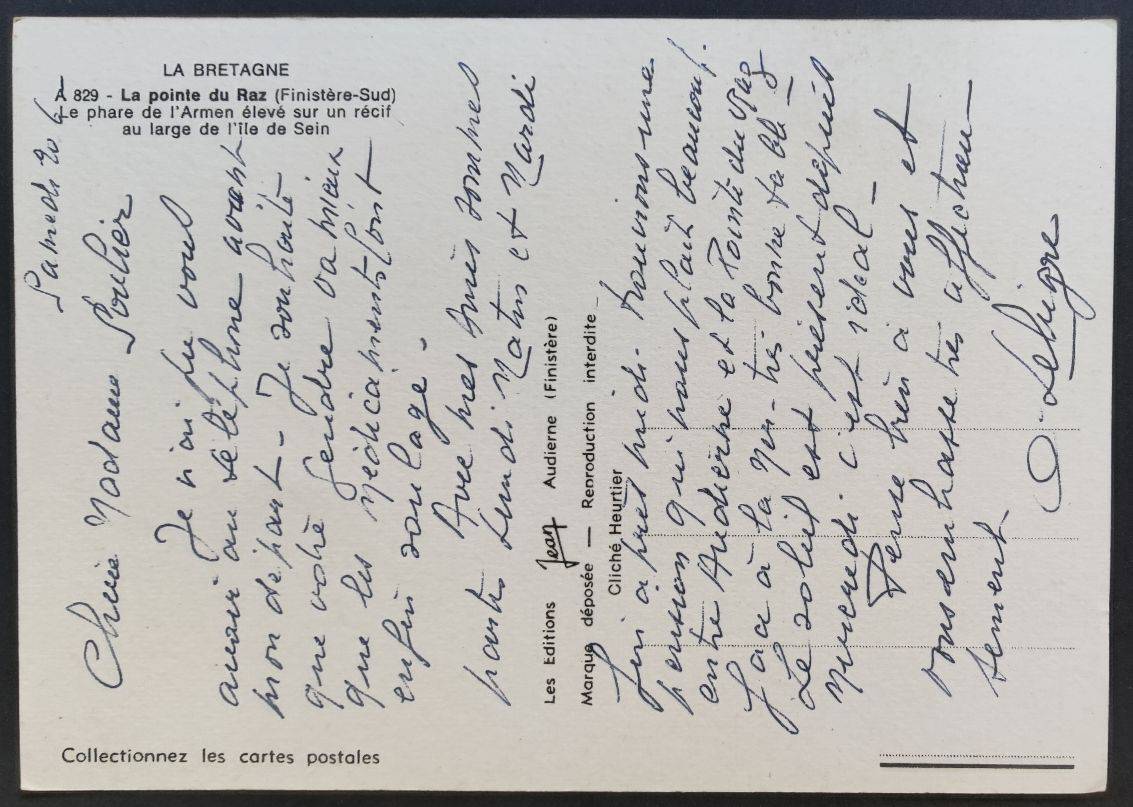 LA BRETAGNE
A 829 - La pointe du Raz (Finistère-Sud)
Le phare de l'Armen élevé sur un récif
au large de l'île de Sein
Samedi 20 6
Chère Madame Soulier
Je n'ai pu vous
avoir au téléphone avant
mon départ - Je souhaite
que votre Gendre va mieux
que les médicaments l'ont
enfin soulagé.
Avec mes amies sommes
partis Lundi Matin et Mardi
Les Editions Jean Audierne (Finistère)
Marque déposée — Reproduction interdite
Cliché Heurtier
fin après midi. trouvions une
pension qui nous plait beaucoup.
entre Audierne et la Pointe du Raz
face à la mer - très bonne table -
Le soleil est présent depuis
Mercredi. c'est idéal -
Pense bien à vous et
vous embrasse très affectueu-
sement
O. Lehigre
Collectionnez les cartes postales